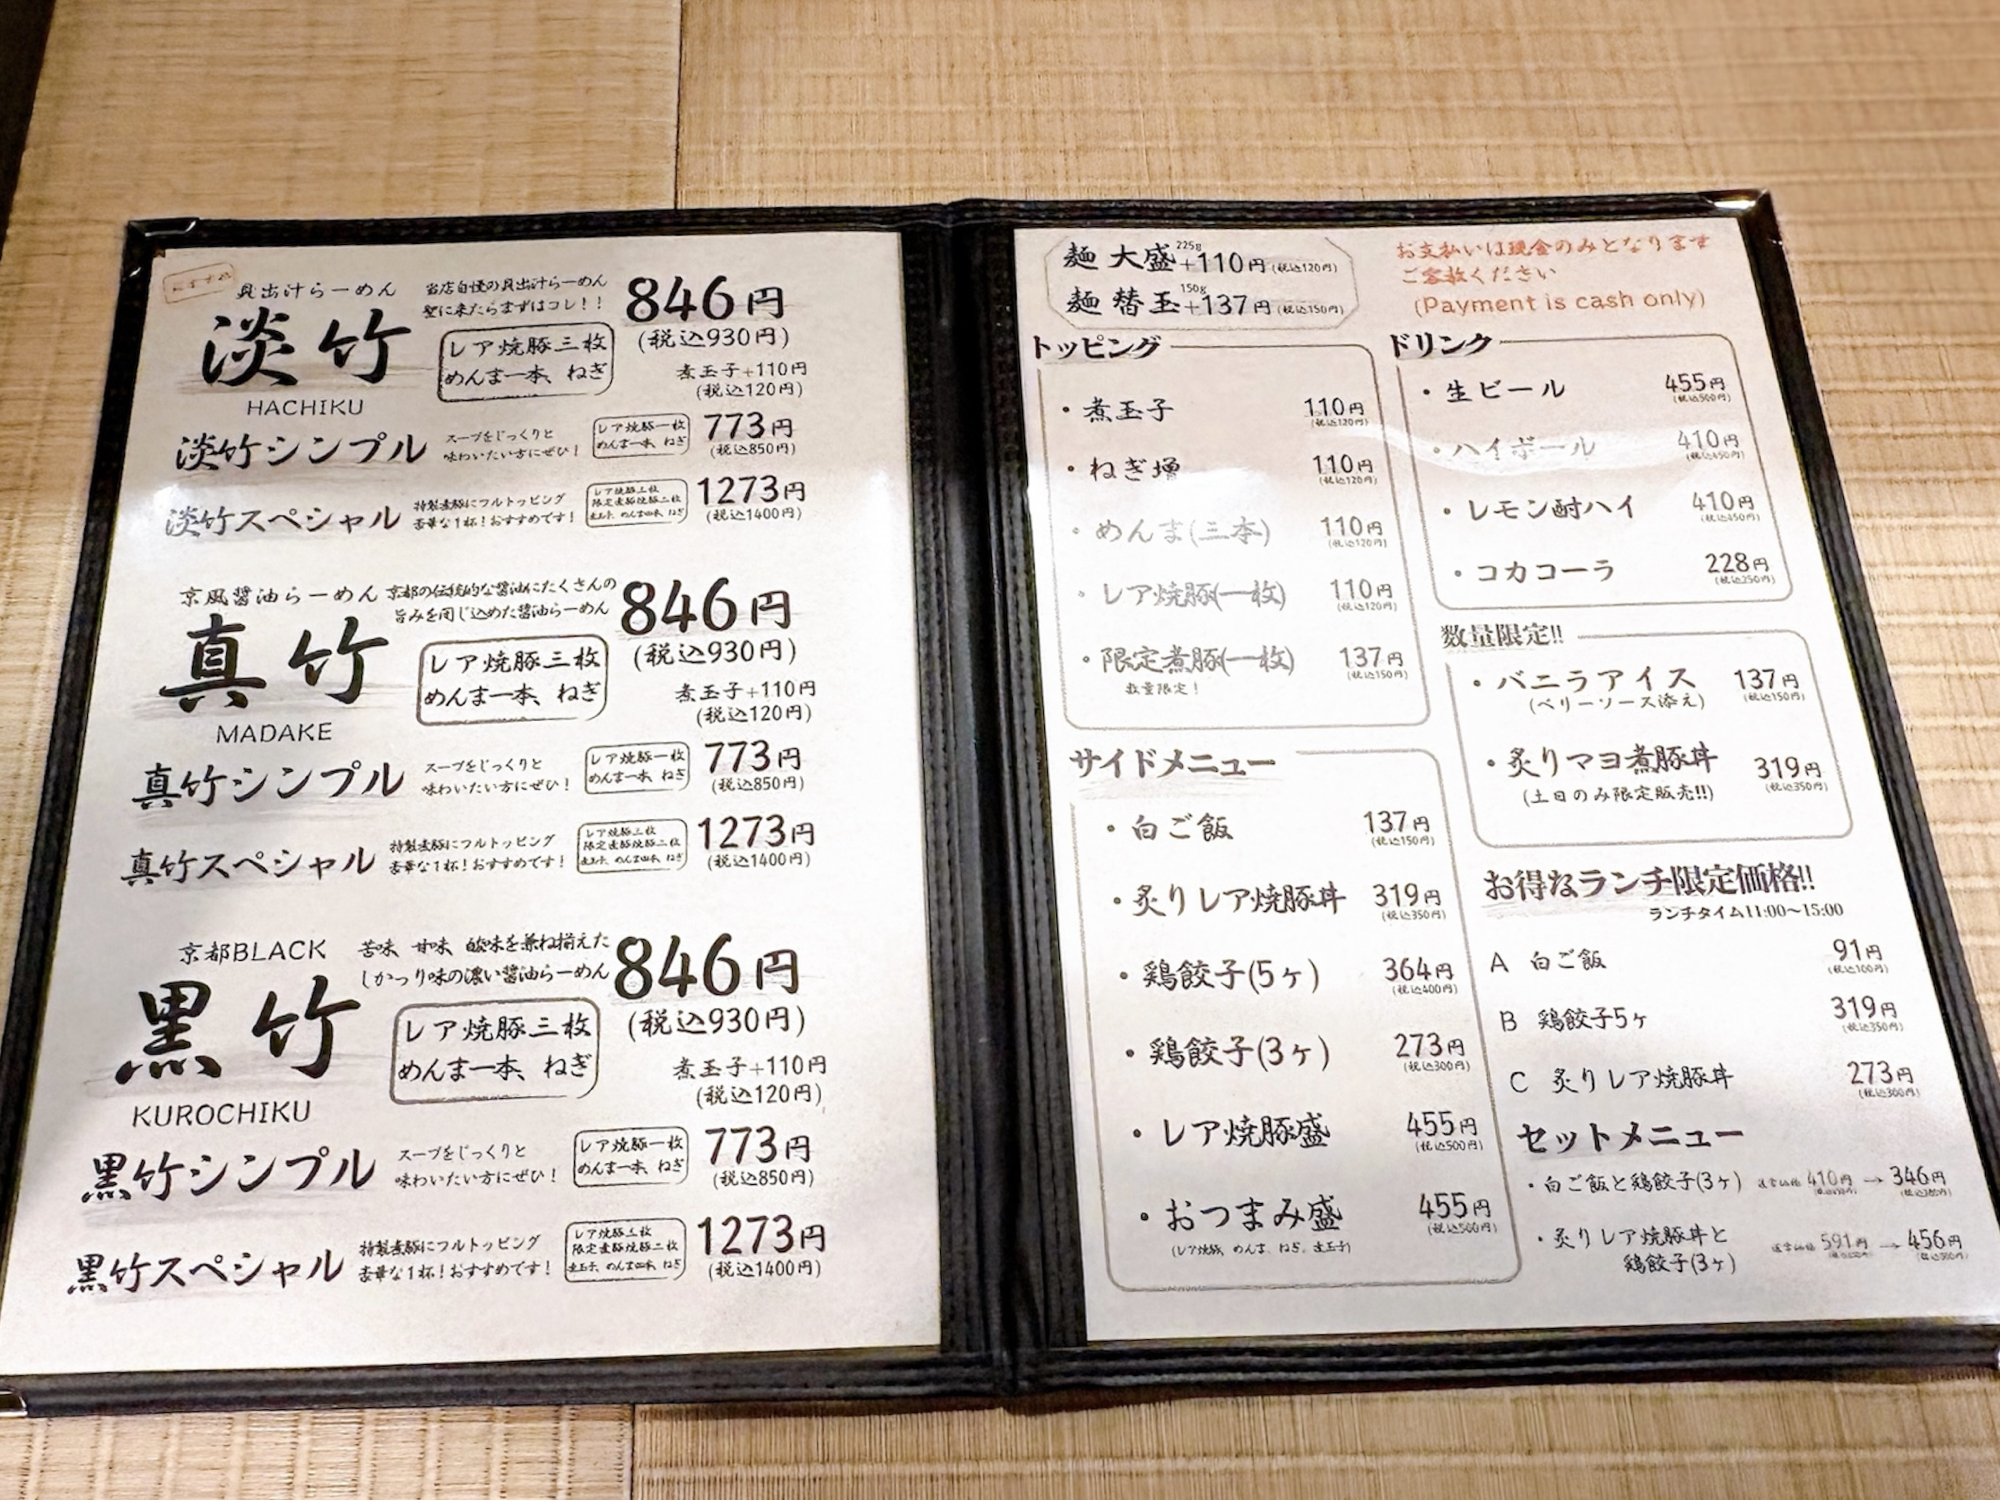 おすすめ
貝出汁らーめん
当店自慢の貝出汁らーめん
聖に来たらまずはコレ！！
846円
(税込930円)
淡竹
HACHIKU
レア焼豚三枚
めんま一本、ねぎ
煮玉子+110円
(税込120円)
淡竹シンプル
スープをじっくりと
味わいたい方にぜひ！
レア焼豚一枚
めんま一本、ねぎ
773円
(税込850円)
淡竹スペシャル
特製煮豚にフルトッピング
豪華な1杯！おすすめです！
レア焼豚三枚
限定煮豚焼豚二枚
煮玉子、めんま四本、ねぎ
1273円
(税込1400円)
京風醤油らーめん
京都の伝統的な醤油にたくさんの
旨みを閉じ込めた醤油らーめん
846円
(税込930円)
真竹
MADAKE
レア焼豚三枚
めんま一本、ねぎ
煮玉子+110円
(税込120円)
真竹シンプル
スープをじっくりと
味わいたい方にぜひ！
レア焼豚一枚
めんま一本、ねぎ
773円
(税込850円)
真竹スペシャル
特製煮豚にフルトッピング
豪華な1杯！おすすめです！
レア焼豚三枚
限定煮豚焼豚二枚
煮玉子、めんま四本、ねぎ
1273円
(税込1400円)
京都BLACK
苦味 甘味 酸味を兼ね揃えた
しかっり味の濃い醤油らーめん
846円
(税込930円)
黒竹
KUROCHIKU
レア焼豚三枚
めんま一本、ねぎ
煮玉子+110円
(税込120円)
黒竹シンプル
スープをじっくりと
味わいたい方にぜひ！
レア焼豚一枚
めんま一本、ねぎ
773円
(税込850円)
黒竹スペシャル
特製煮豚にフルトッピング
豪華な1杯！おすすめです！
レア焼豚三枚
限定煮豚焼豚二枚
煮玉子、めんま四本、ねぎ
1273円
(税込1400円)
麺 大盛 225g +110円 (税込120円)
麺 替玉 150g +137円 (税込150円)
お支払いは現金のみとなります
ご容赦ください
(Payment is cash only)
トッピング
・煮玉子 110円
(税込120円)
・ねぎ増 110円
(税込120円)
・めんま(三本) 110円
(税込120円)
・レア焼豚(一枚) 110円
(税込120円)
・限定煮豚(一枚) 137円
数量限定！ (税込150円)
サイドメニュー
・白ご飯 137円
(税込150円)
・炙りレア焼豚丼 319円
(税込350円)
・鶏餃子(5ヶ) 364円
(税込400円)
・鶏餃子(3ヶ) 273円
(税込300円)
・レア焼豚盛 455円
(税込500円)
・おつまみ盛 455円
(レア焼豚、めんま、ねぎ、煮玉子) (税込500円)
ドリンク
・生ビール 455円
(税込500円)
・ハイボール 410円
(税込450円)
・レモン酎ハイ 410円
(税込450円)
・コカコーラ 228円
(税込250円)
数量限定!!
・バニラアイス 137円
(ベリーソース添え) (税込150円)
・炙りマヨ煮豚丼 319円
(土日のみ限定販売!!) (税込350円)
お得なランチ限定価格!!
ランチタイム11:00〜15:00
A 白ご飯 91円
(税込100円)
B 鶏餃子5ヶ 319円
(税込350円)
C 炙りレア焼豚丼 273円
(税込300円)
セットメニュー
・白ご飯と鶏餃子(3ヶ) 通常価格 410円 → 346円
・炙りレア焼豚丼と
鶏餃子(3ヶ) 通常価格 591円 → 456円